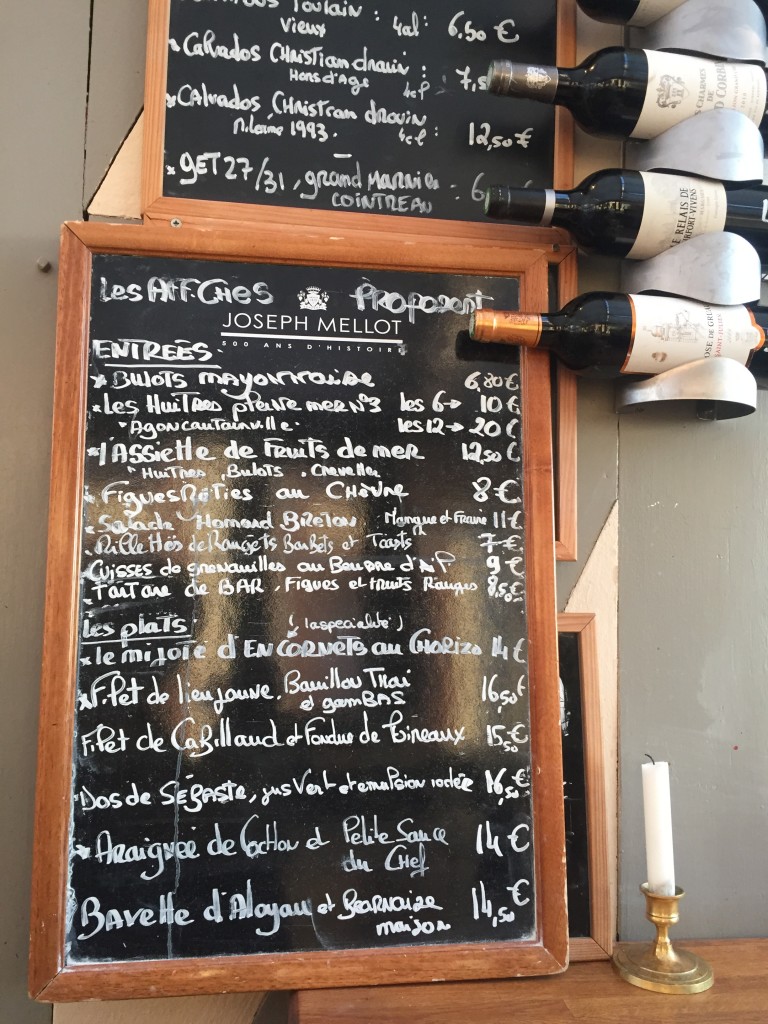 Toulain :
Vieux 4cl : 6,50 €
CALVADOS CHRISTIAN drouin :
Hors d'Age 4cl 7,5
CALVADOS CHRISTIAN drouin
1993. 4cl : 12,50 €
GET 27/31, grand MARNIER : 6
COINTREAU
Les AFFiCHes PROPOSENT
JOSEPH MELLOT
500 ANS D'HISTOIRE
ENTREES.
BULOTS mayonnaise 6,80 €
Les Huitres pleine mer N°3 les 6 → 10 €
Agoncoutainville. les 12 → 20 €
l'Assiette de Fruits de mer 12,50 €
Huitres, Bulots, Crevettes
Figues Roties au CHèvre 8 €
Salade Homard Breton Mangue et Fraise 11 €
Rillettes de Rougets Barbets et Toasts 7 €
Cuisses de grenouilles au Beurre d'Ail 9 €
Tartare de BAR, Figues et fruits Rouges 8,50 €
Les plats. (la spécialité)
le mijoté d'ENCORNETS au CHORIZO 14 €
Filet de lieu jaune, Bouillon Thaï 16,50 €
et gamBAS
Filet de Cabillaud et Fondue de Poireaux 15,50 €
Dos de SÉBASTE, jus Vert et emulsion iodée 16,50 €
Araignée de Cochon et Petite Sauce 14 €
du Chef
Bavette d'Aloyau et Bearnaise 14,50 €
maison
CHARMES
DE
D CORBIN
E RELAIS DE
RFORT-VIVENS
OSE DE GRUA
SAINT-JULIEN